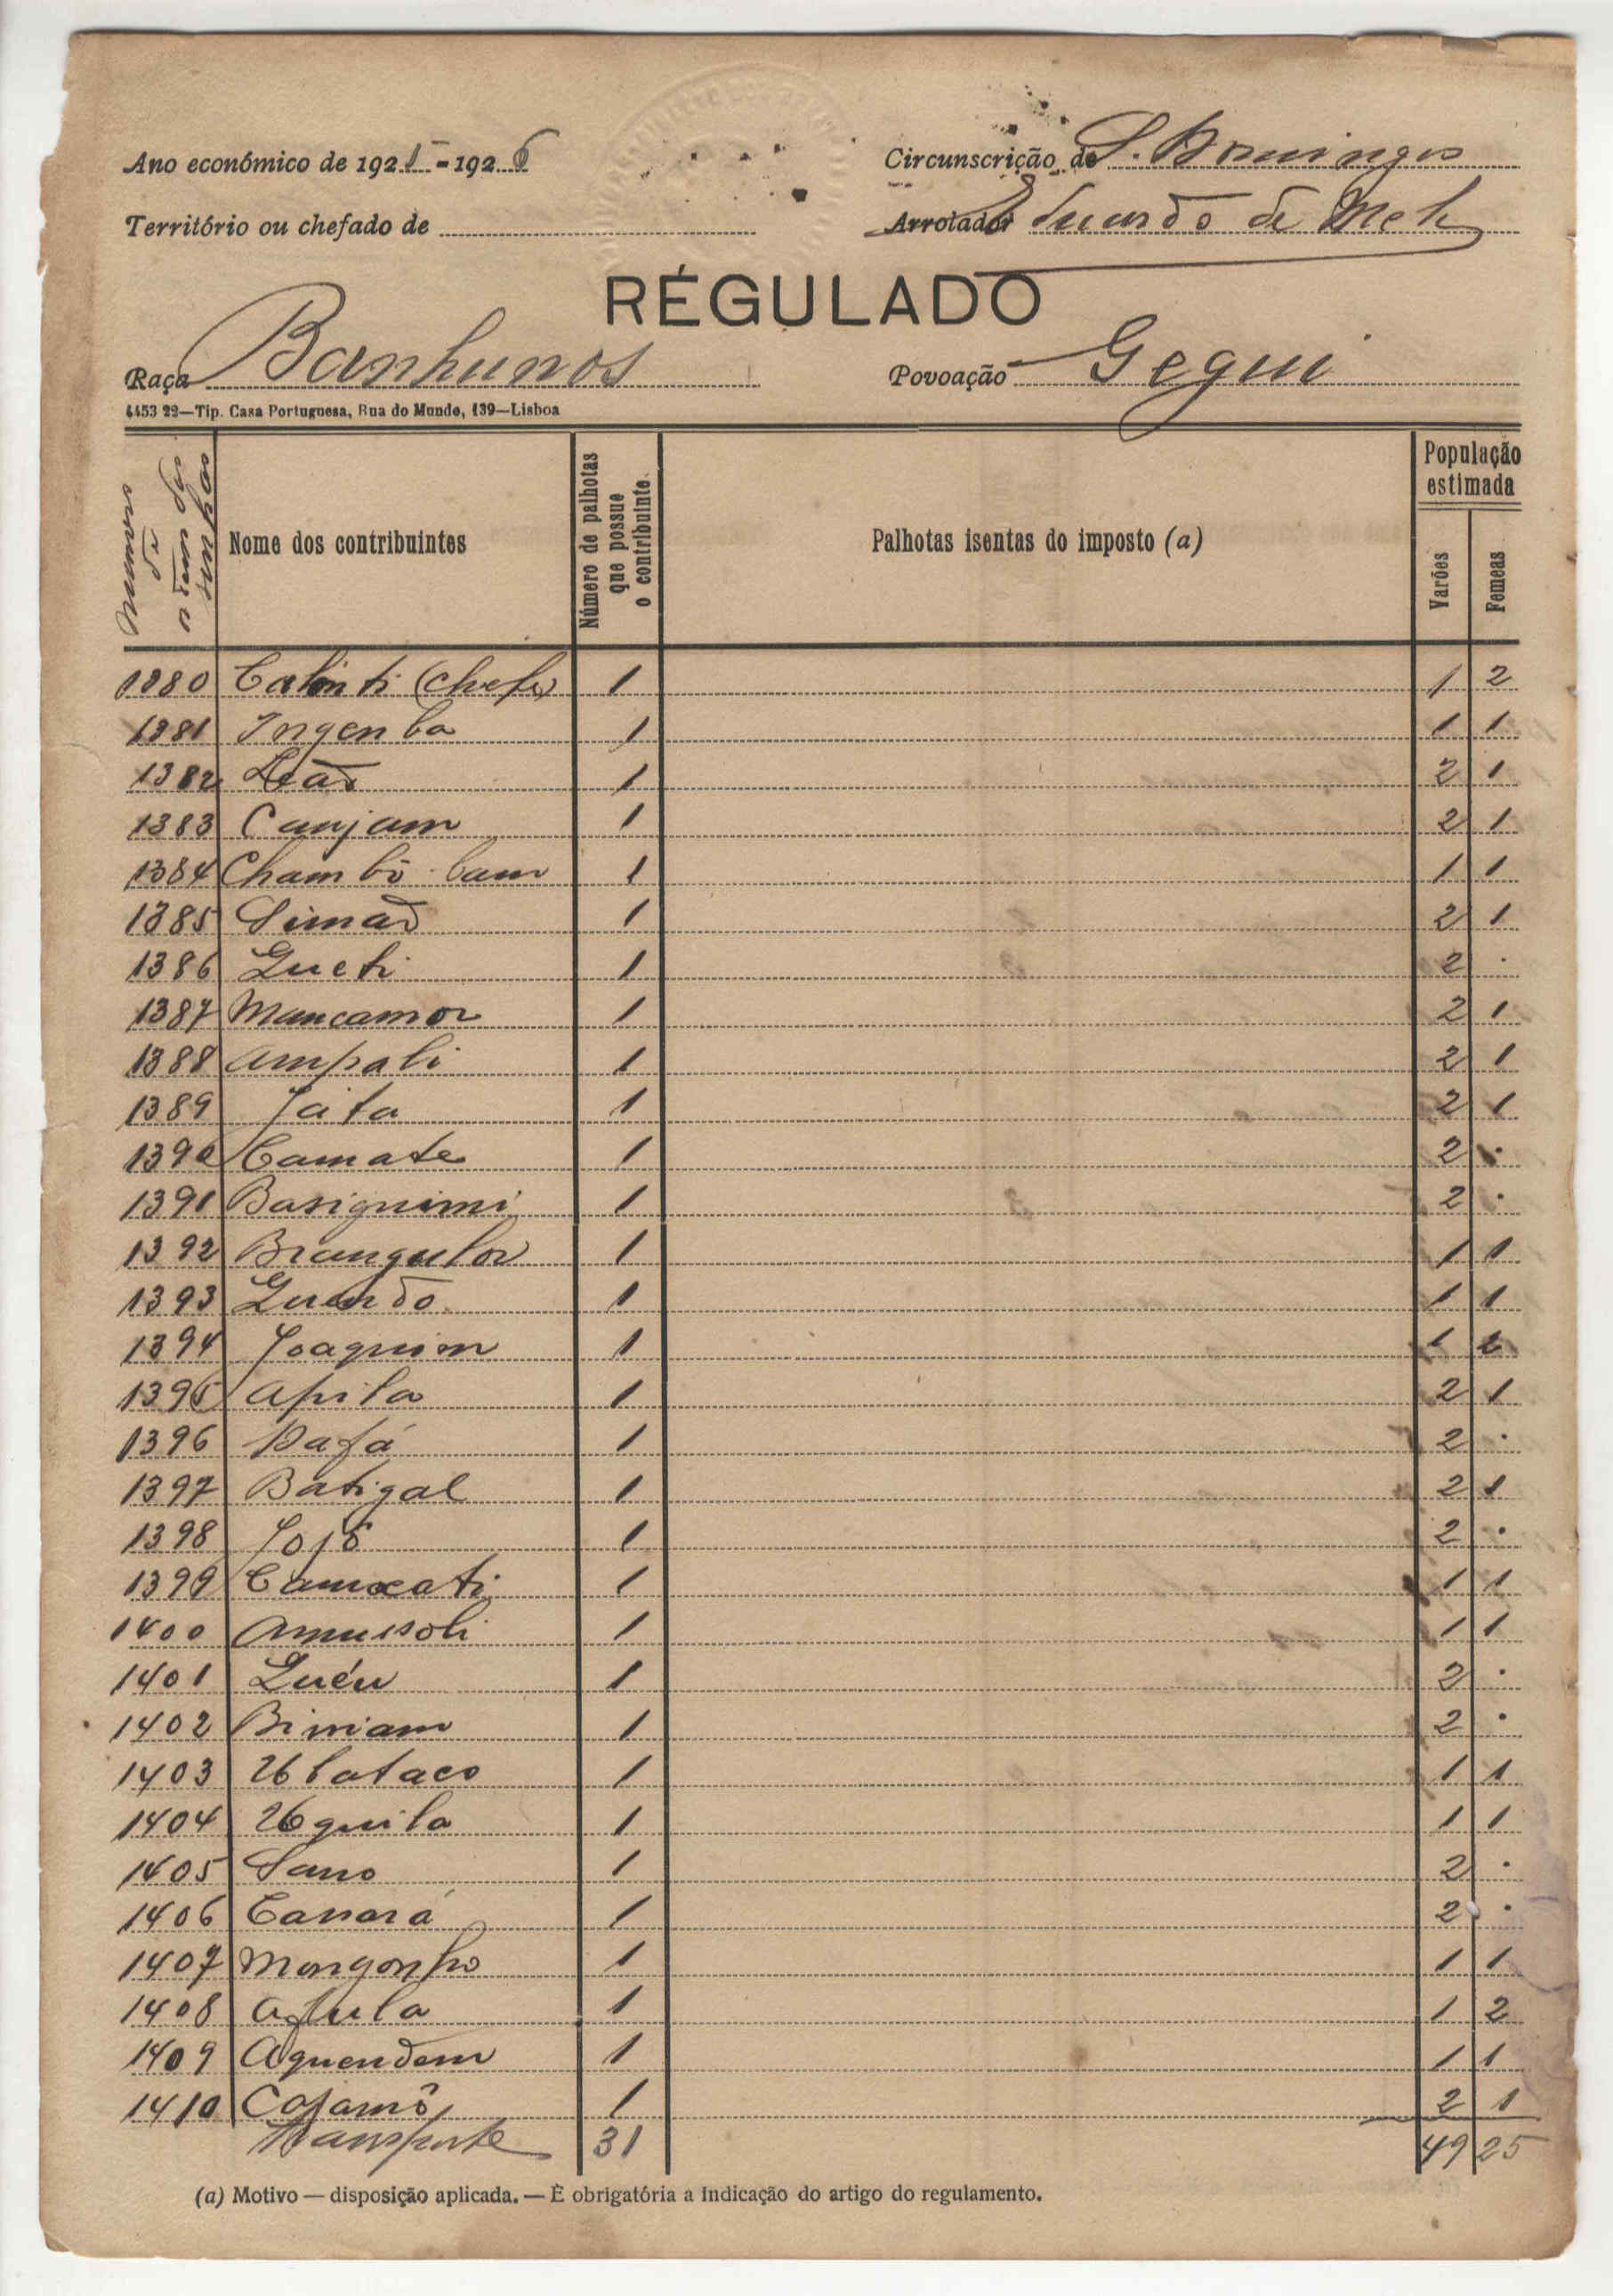 Ano económico de 1925-1926
Circunscrição de S. Domingos
Território ou chefado de
Arrolador Eduardo de Melo
RÉGULADO
Raça Banhunos
Povoação Gegui
4453 22—Tip. Casa Portuguesa, Rua do Mundo, 139—Lisboa
Nome dos contribuintes
Número de palhotas que possue o contribuinte
Palhotas isentas do imposto (a)
População estimada
Varões
Femeas
1380 (chefe) 1 1 2
1381 Ingenba 1 1 1
1382 Leão 1 2 1
1383 Canjam 1 2 1
1384 Chambô 1 1 1
1385 Simão 1 2 1
1386 Gueti 1 2 .
1387 Mancamor 1 2 1
1388 Ampali 1 2 1
1389 Jata 1 2 1
1390 Camate 1 2 .
1391 Basiguimi 1 2 .
1392 Brangulor 1 1 1
1393 1 1 1
1394 Joaquim 1 1 2
1395 Apila 1 2 1
1396 Dafá 1 2 .
1397 Batigal 1 2 1
1398 Jojô 1 2 .
1399 Camxati 1 1 1
1400 Amussoli 1 1 1
1401 Luéu 1 2 .
1402 Biniam 1 2 .
1403 Ubataco 1 1 1
1404 Uguila 1 1 1
1405 Sano 1 2 .
1406 Canará 1 2 .
1407 Mongonho 1 1 1
1408 Afula 1 1 2
1409 Aguendem 1 1 1
1410 Cajamô 1 2 1
Transporte 31 49 25
(a) Motivo — disposição aplicada. — É obrigatória a indicação do artigo do regulamento.